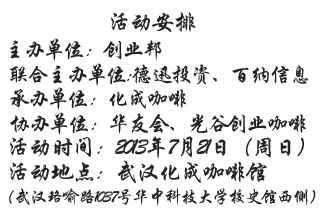 活动安排
主办单位：创业邦
联合主办单位:德迅投资、百纳信息
承办单位：化成咖啡
协办单位：华友会、光谷创业咖啡
活动时间：2013年7月21日（周日）
活动地点：武汉化成咖啡馆
(武汉珞喻路1037号华中科技大学校史馆西侧)